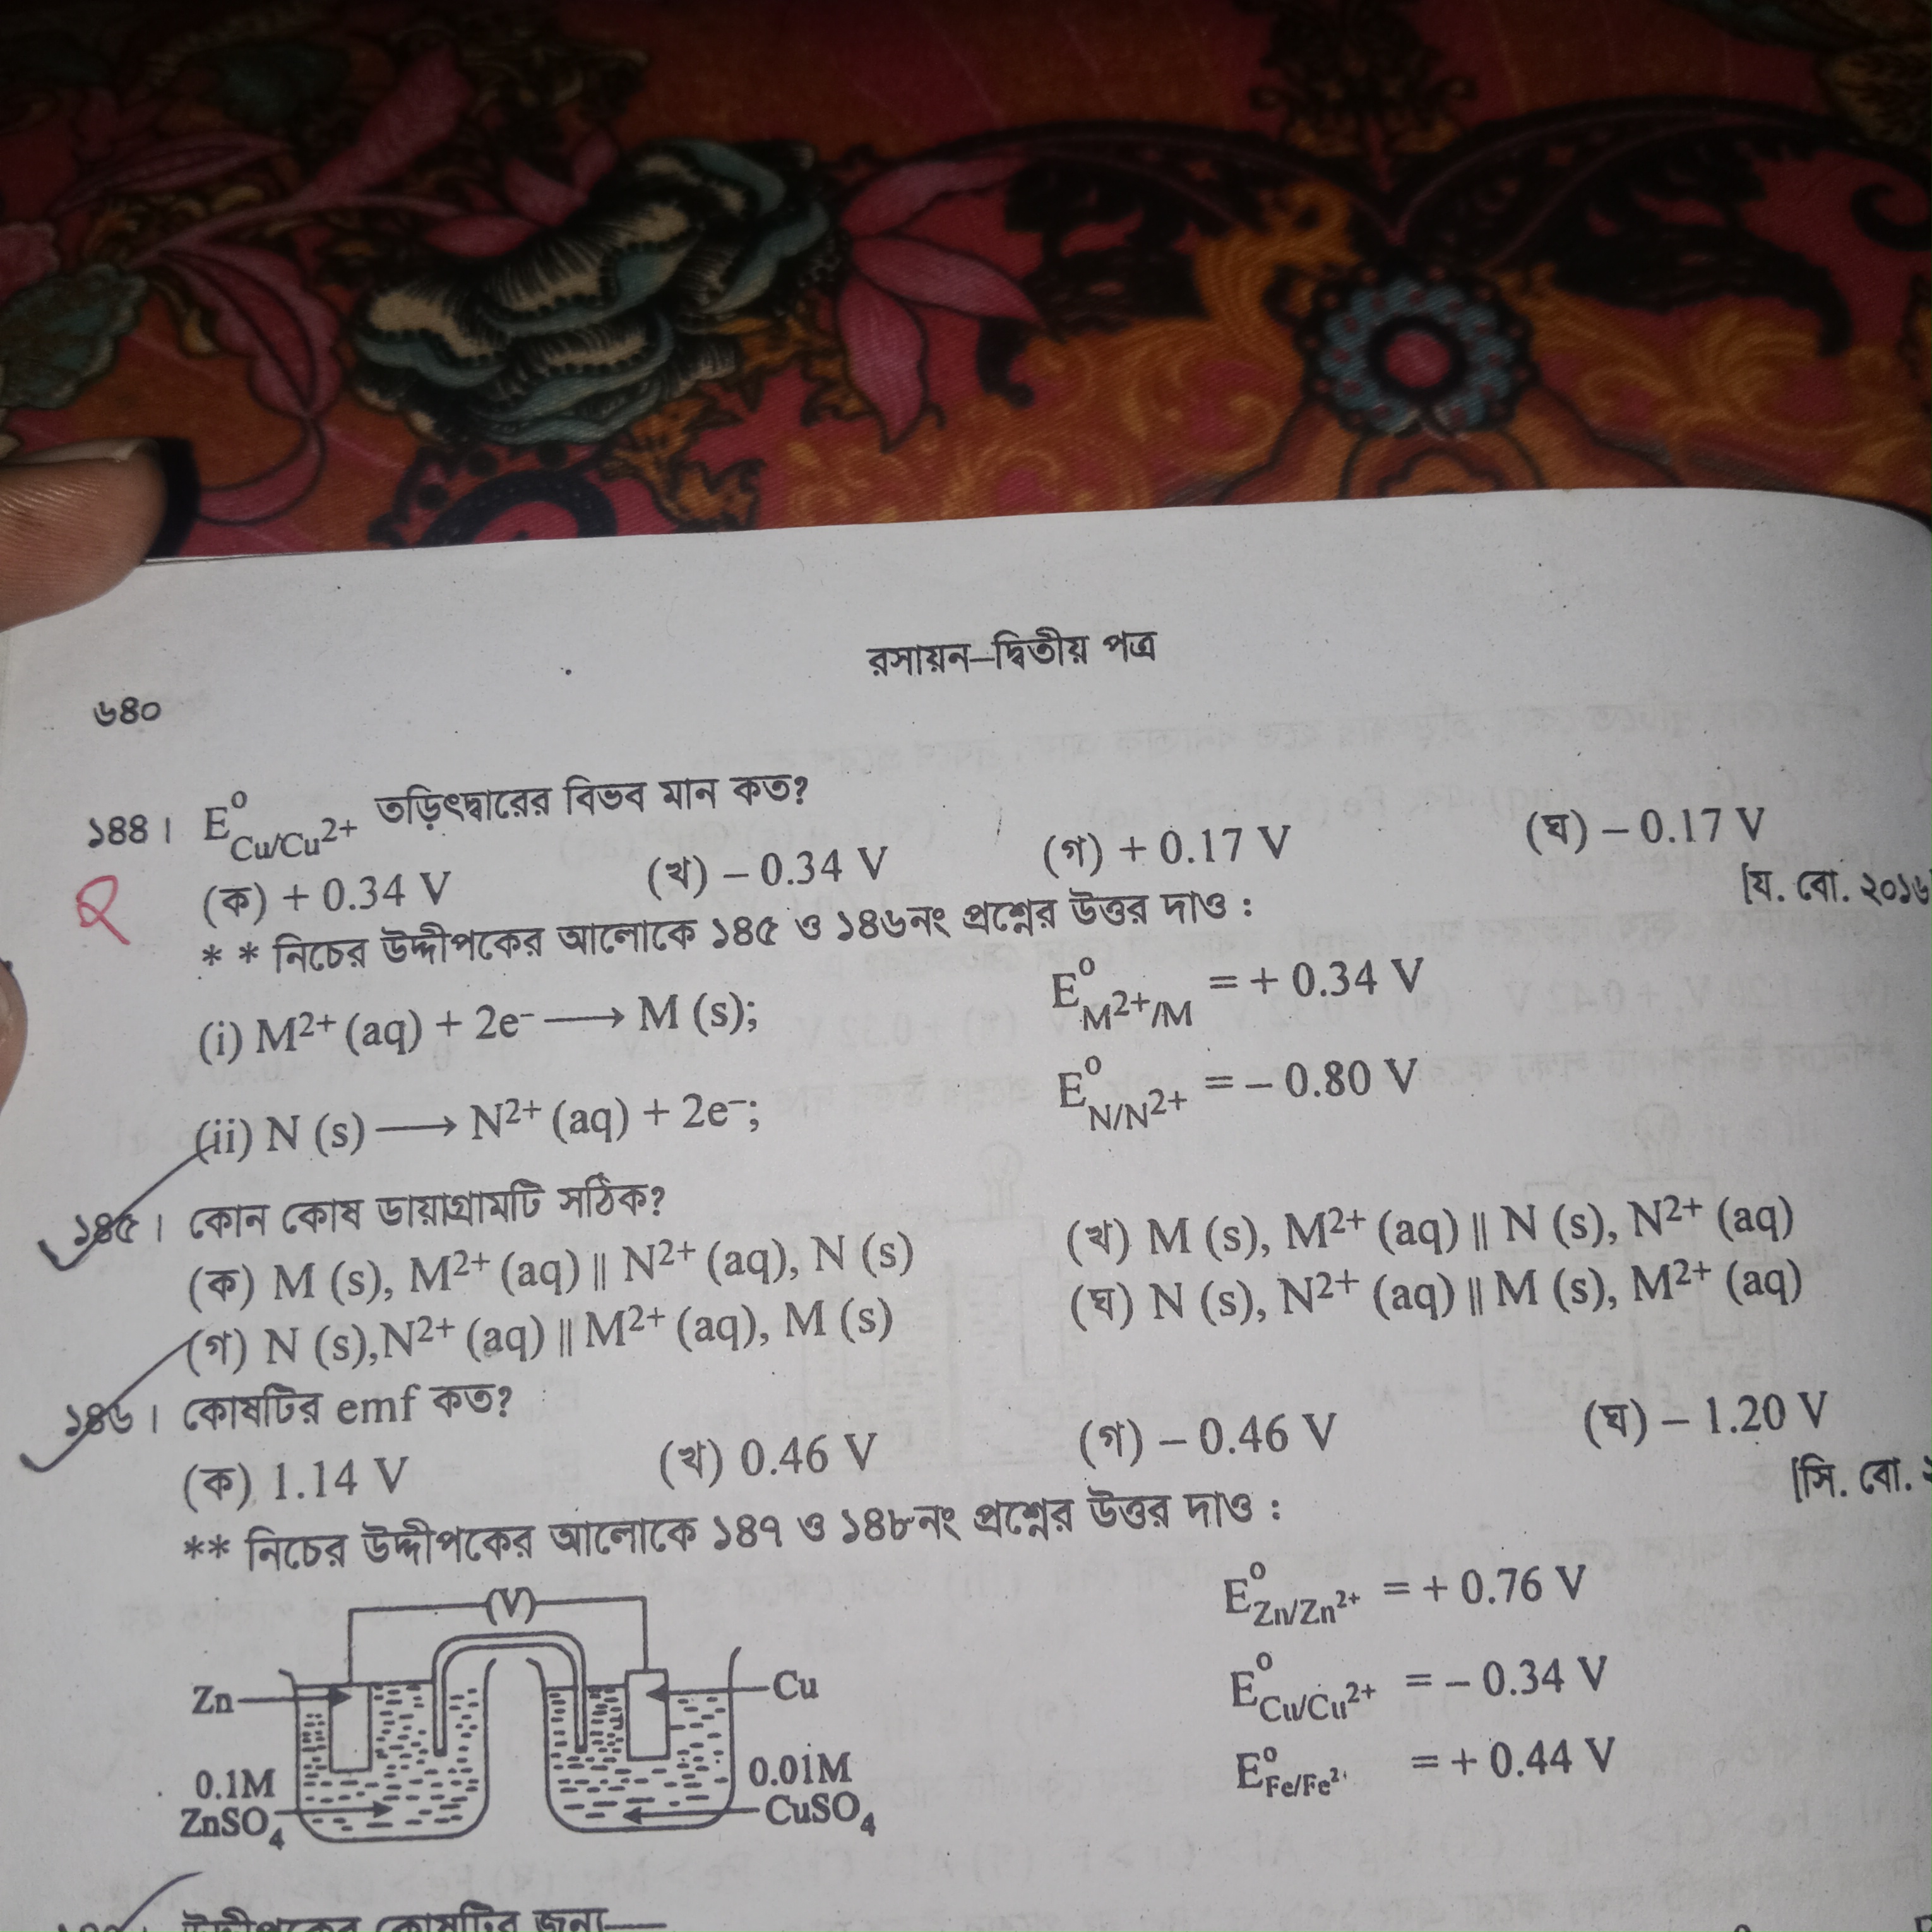 রসায়ন–দ্বিতীয় পত্র
৬৪০
১৪৪। E°Cu/Cu²⁺ তড়িৎদ্বারের বিভব মান কত?
(ক) + 0.34 V (খ) – 0.34 V (গ) + 0.17 V (ঘ) – 0.17 V
[য. বো. ২০১৬
* * নিচের উদ্দীপকের আলোকে ১৪৫ ও ১৪৬নং প্রশ্নের উত্তর দাও :
(i) M²⁺ (aq) + 2e⁻ ⟶ M (s); E°M²⁺/M = + 0.34 V
(ii) N (s) ⟶ N²⁺ (aq) + 2e⁻; E°N/N²⁺ = – 0.80 V
১৪৫। কোন কোষ ডায়াগ্রামটি সঠিক?
(ক) M (s), M²⁺ (aq) || N²⁺ (aq), N (s) (খ) M (s), M²⁺ (aq) || N (s), N²⁺ (aq)
(গ) N (s),N²⁺ (aq) || M²⁺ (aq), M (s) (ঘ) N (s), N²⁺ (aq) || M (s), M²⁺ (aq)
১৪৬। কোষটির emf কত?
(ক) 1.14 V (খ) 0.46 V (গ) – 0.46 V (ঘ) – 1.20 V
[সি. বো.
** নিচের উদ্দীপকের আলোকে ১৪৭ ও ১৪৮নং প্রশ্নের উত্তর দাও :
(V)
E°Zn/Zn²⁺ = + 0.76 V
Zn Cu
E°Cu/Cu²⁺ = – 0.34 V
E°Fe/Fe²⁺ = + 0.44 V
0.1M 0.01M
ZnSO₄ CuSO₄
উদ্দীপকের কোষটির জন্য—